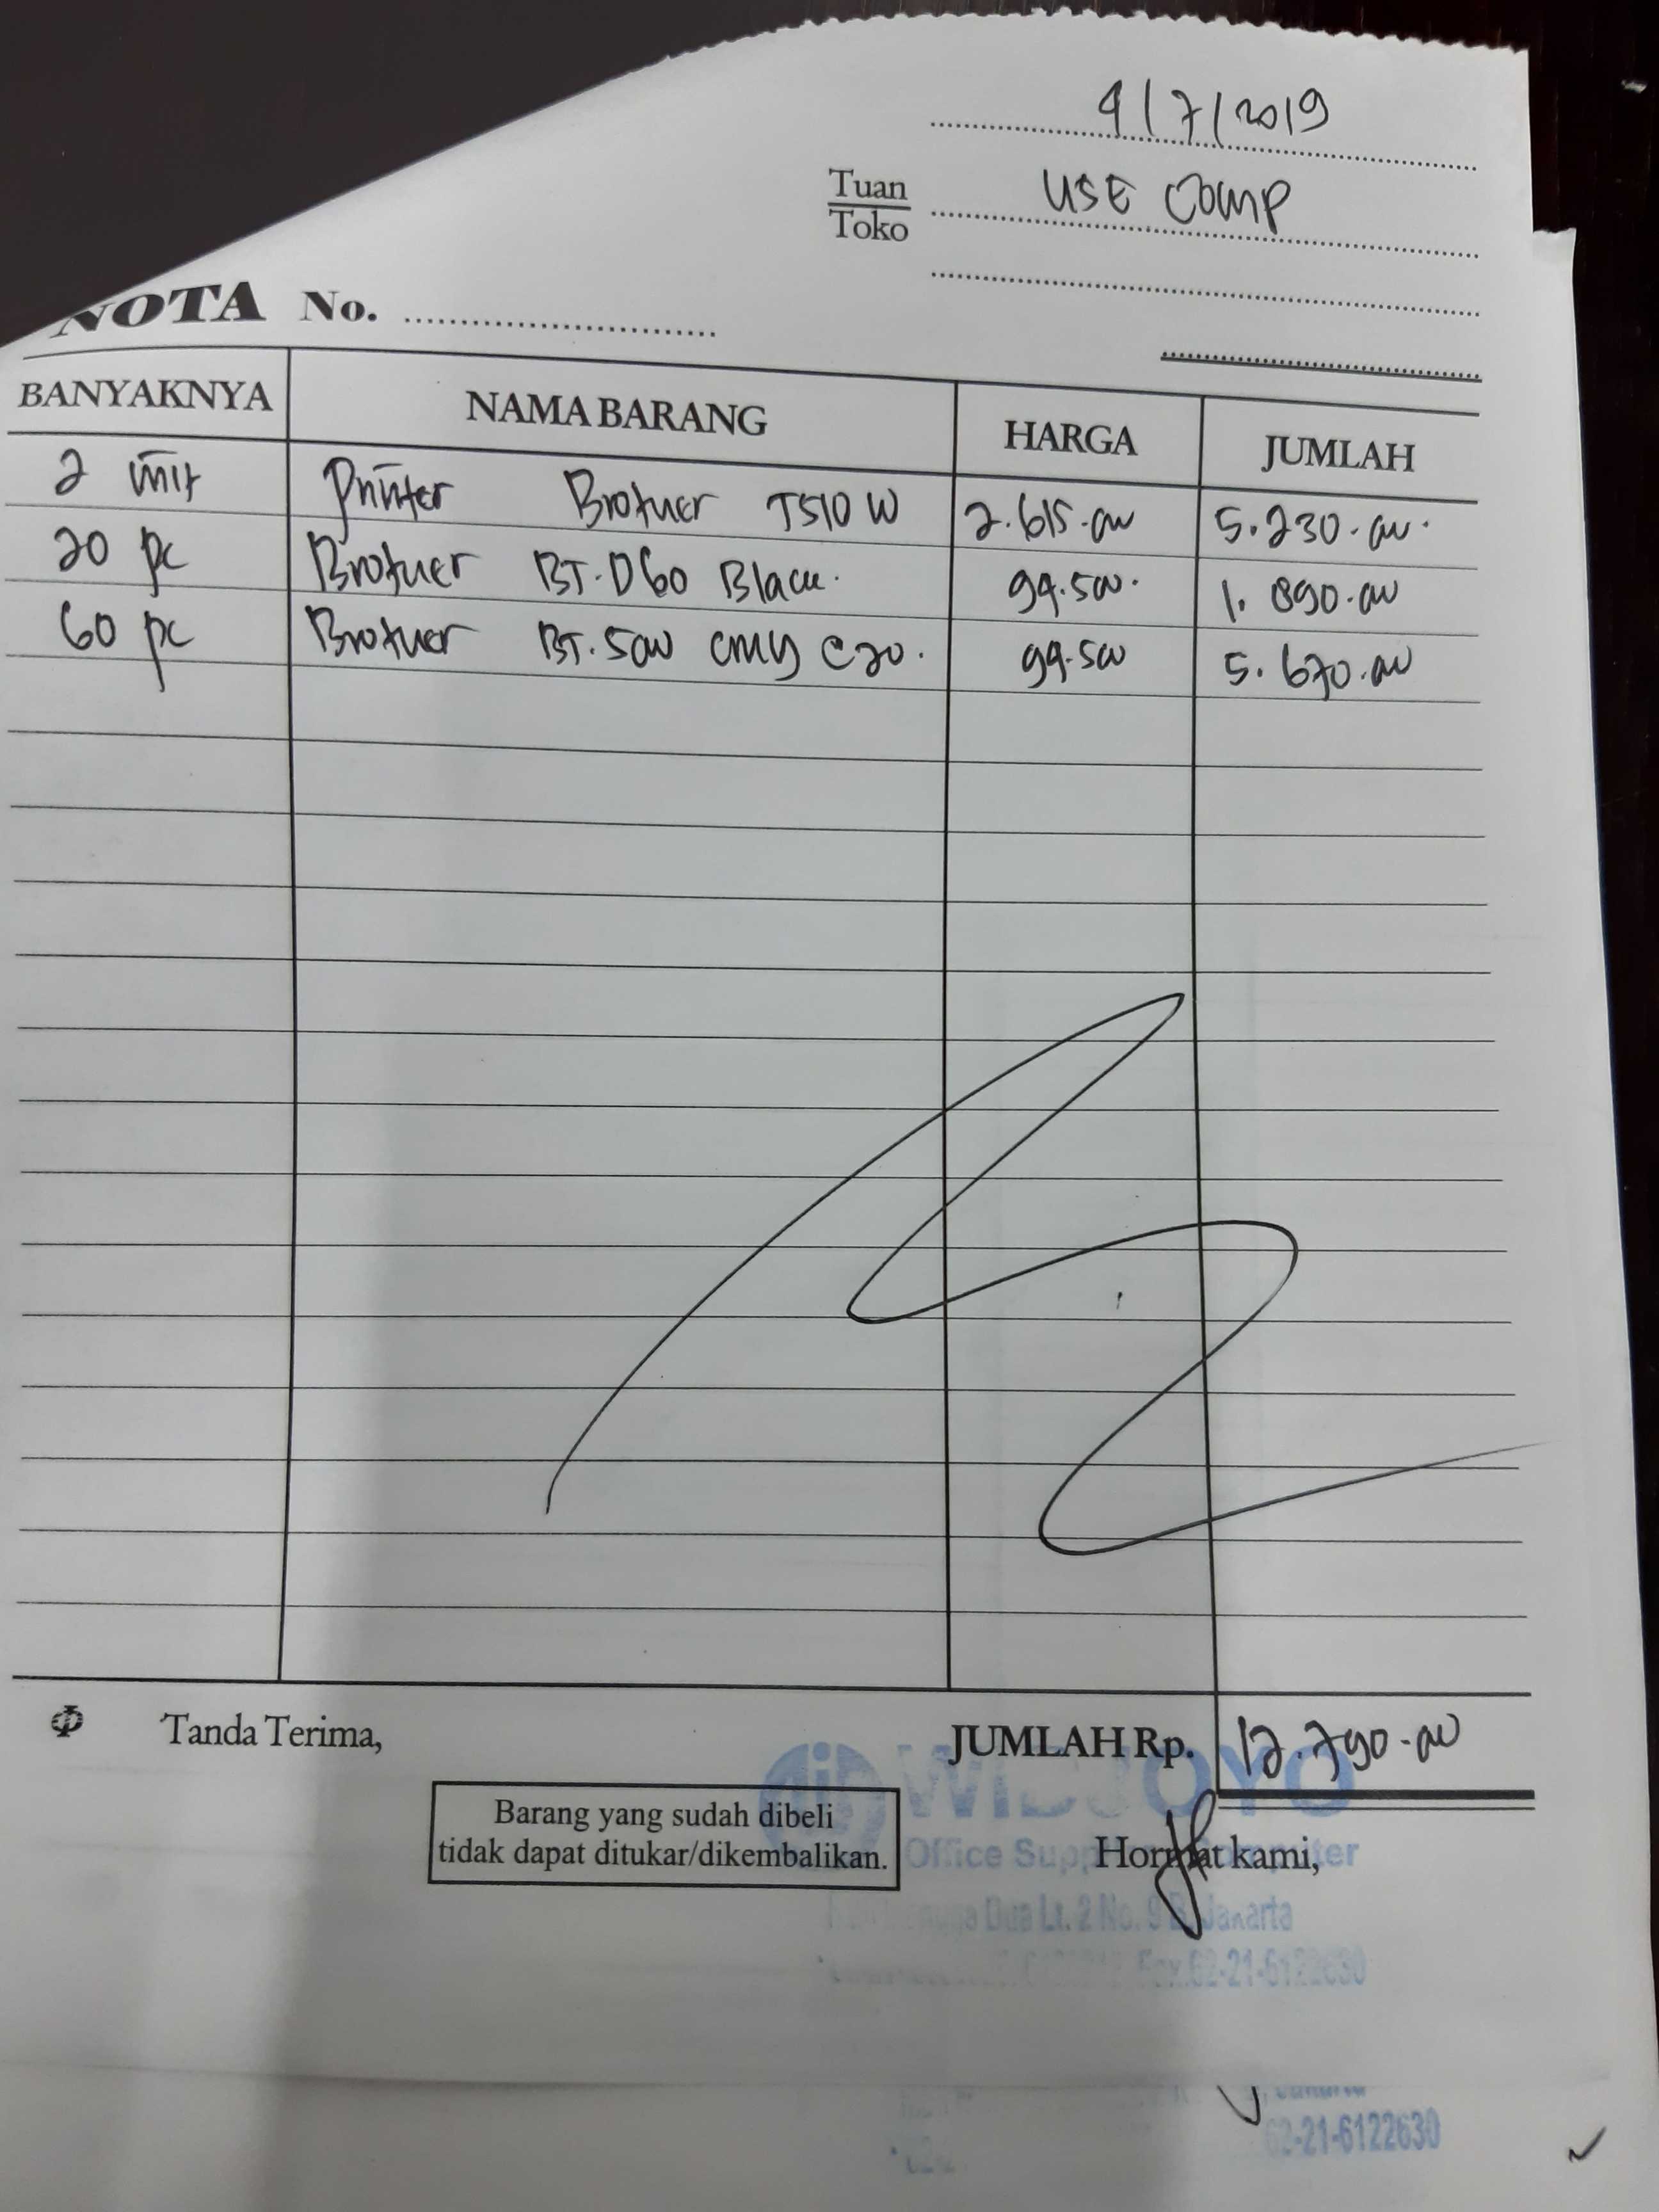 4/7/2019
Tuan
Toko
USE Comp
NOTA No.
BANYAKNYA NAMA BARANG HARGA JUMLAH
2 unit Printer Brother T510 W 2.615.00 5.230.00.
20 pc Brother BT.D60 Black. 94.500. 1.890.00
60 pc Brother BT.500 CMY @20. 94.500 5.670.00
Φ Tanda Terima, JUMLAH Rp. 12.790.00
WIDJOYO
Barang yang sudah dibeli
tidak dapat ditukar/dikembalikan.
Hormat kami,
Office Computer
Dua Lt. 2 No. 9 B, Jakarta
Fax.62-21-6122630
62-21-6122630